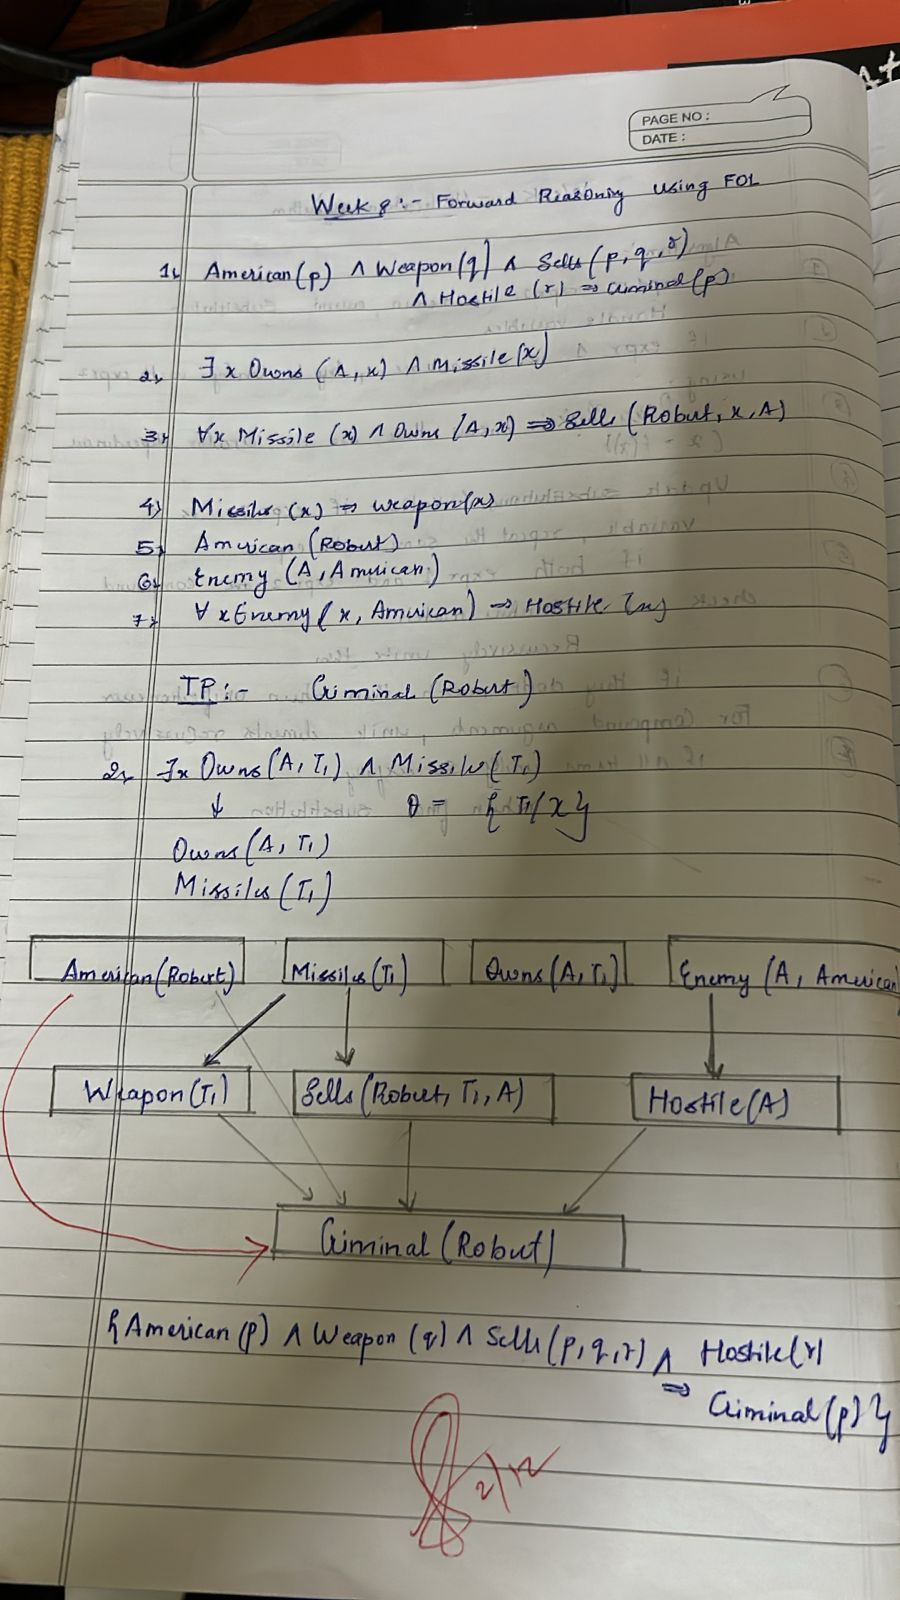 PAGE NO :
DATE :
Week 8 :- Forward Reasoning using FOL
1) American(p) ∧ Weapon(q) ∧ Sells(p, q, r)
∧ Hostile (r) ⇒ Criminal(p)
2) ∃ x Owns (A, x) ∧ Missile(x)
3) ∀x Missile (x) ∧ Owns (A, x) ⇒ Sells (Robert, x, A)
4) Missiles (x) ⇒ Weapon(x)
5) American (Robert)
6) Enemy (A, American)
7) ∀ x Enemy (x, American) ⇒ Hostile (x)
TP :- Criminal (Robert)
2) ∃x Owns(A, T₁) ∧ Missile(T₁)
↓ θ = { T₁/x }
Owns(A, T₁)
Missiles(T₁)
American(Robert) Missiles(T₁) Owns(A, T₁) Enemy (A, American
Weapon(T₁) Sells(Robert, T₁, A) Hostile(A)
Criminal (Robert)
{ American (p) ∧ Weapon (q) ∧ Sells(p, q, r) ∧ Hostile(r)
⇒ Criminal(p) }
2/12